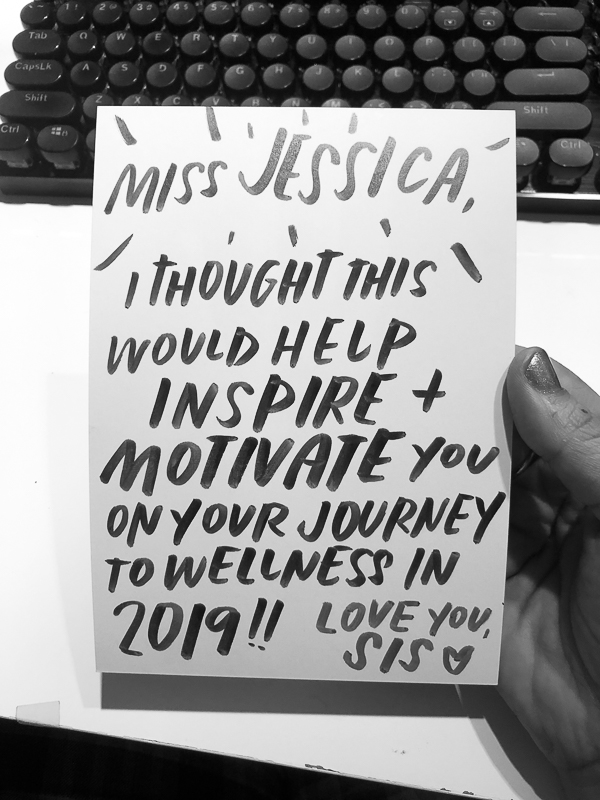 Tab Q W E R T Y U I O P
CapsLk A S D F G H J K L
Shift Z X C V B N M Shift
Ctrl Ctrl
MISS JESSICA,
I THOUGHT THIS
WOULD HELP
INSPIRE +
MOTIVATE YOU
ON YOUR JOURNEY
TO WELLNESS IN
2019!! LOVE YOU,
SIS ♡